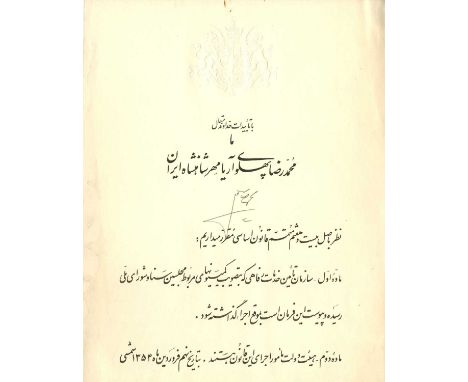 با تأییدات خداوند متعال
ما
محمد رضا پهلوی آریامهر شاهنشاه ایران
نظر باصل بیست و هفتم متمم قانون اساسی مقرر میداریم :
ماده اول . سازمان تأمین خدمات رفاهی که بتصویب کمیسیونهای مربوط مجلسین سنا و شورای ملی
رسیده و پیوست این فرمان است بموقع اجرا گذاشته شود .
ماده دوم . هیئت دولت مأمور اجرای این قانون هستند . بتاریخ نهم فروردین ماه ۱۳۵۴ شمسی